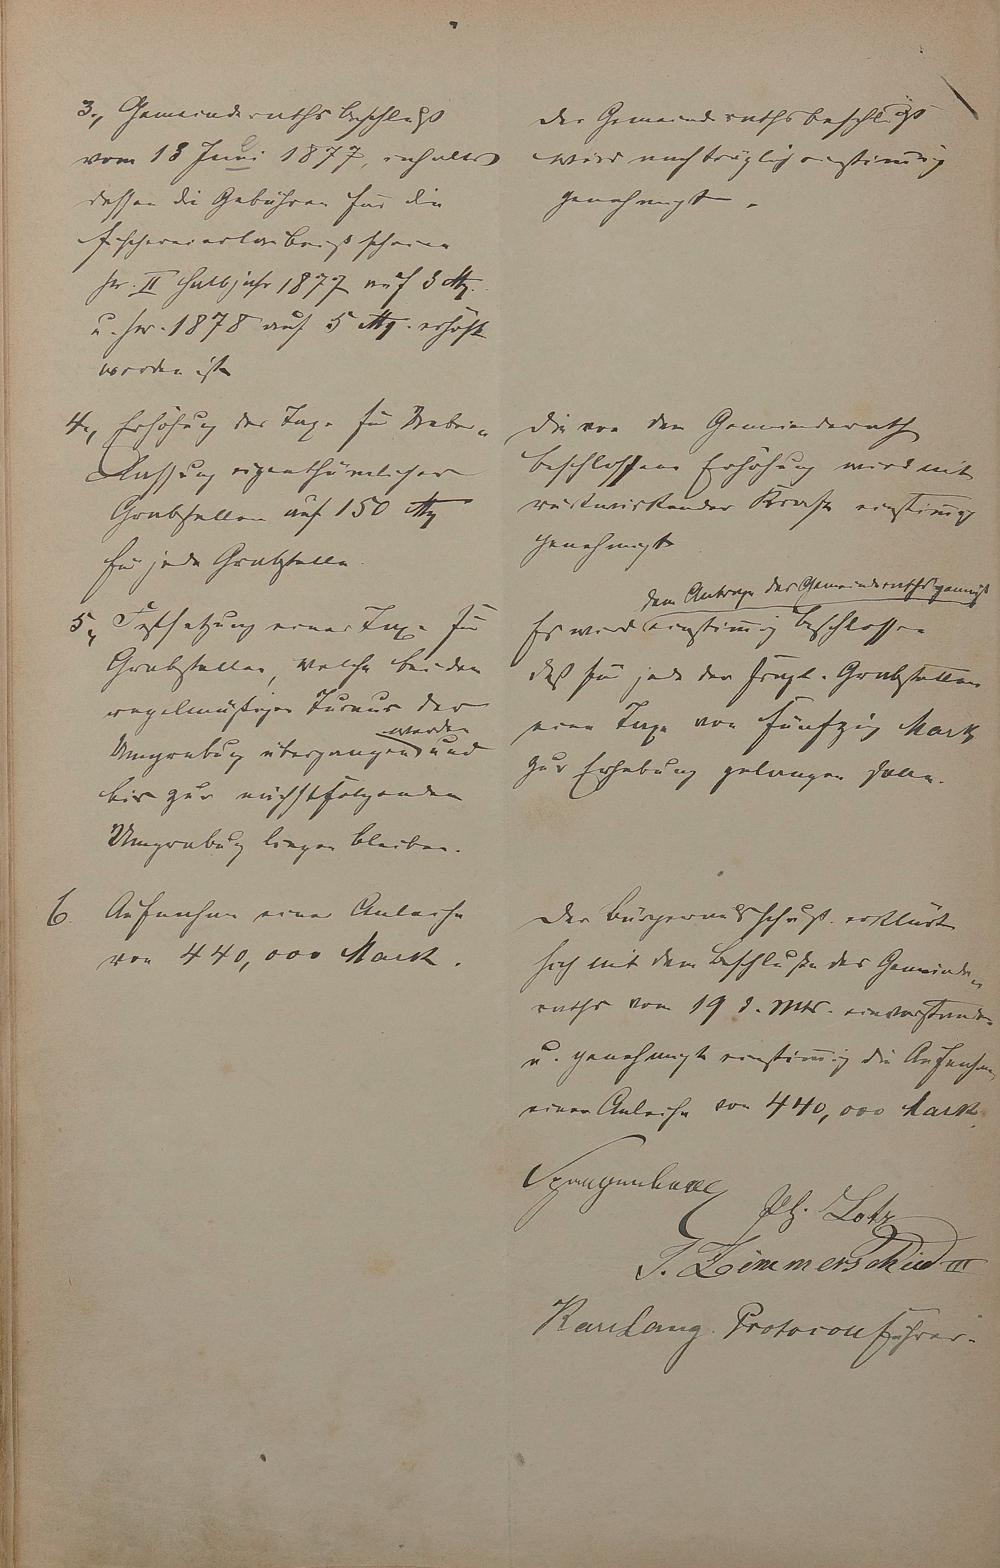 3., Gemeinderathsbeschluß
vom 18 Juni 1877, inhalts
dessen die Gebühren für die
Fischereierlaubnißscheine
pr. II Halbjahr 1877 auf 3 M.
u. pr. 1878 auf 5 M. erhöht
worden ist
Der Gemeinderathsbeschluß
wird nachträglich einstimmig
genehmigt.
4., Erhöhung der Taxe für Ueber-
lassung eigenthümlicher
Grabstellen auf 150 M
für jede Grabstelle.
Die von dem Gemeinderath
beschlossene Erhöhung wird mit
rückwirkender Kraft einstimmig
genehmigt
5., Festsetzung einer Taxe für
Grabstellen, welche bei dem
regelmäßigen Turnus der
Umgrabung übergangen werden und
bis zur nächstfolgenden
Umgrabung liegen bleiben.
dem Antrage des Gemeinderaths gemäß
Es wird einstimmig beschlossen
daß für jede der fragl. Grabstellen
eine Taxe von Fünfzig Mark
zur Erhebung gelangen solle.
6. Aufnahme einer Anleihe
von 440,000 Mark.
Der Bürgerausschuß erklärt
sich mit dem Beschluße des Gemeinde-
raths vom 19 d. Mts. einverstanden
u. genehmigt einstimmig die Aufnahme
einer Anleihe von 440,000 Mark.
Spangenberg
Ph. Lotz
J. Zimmerschied III
Karl Lang Protocollführer.